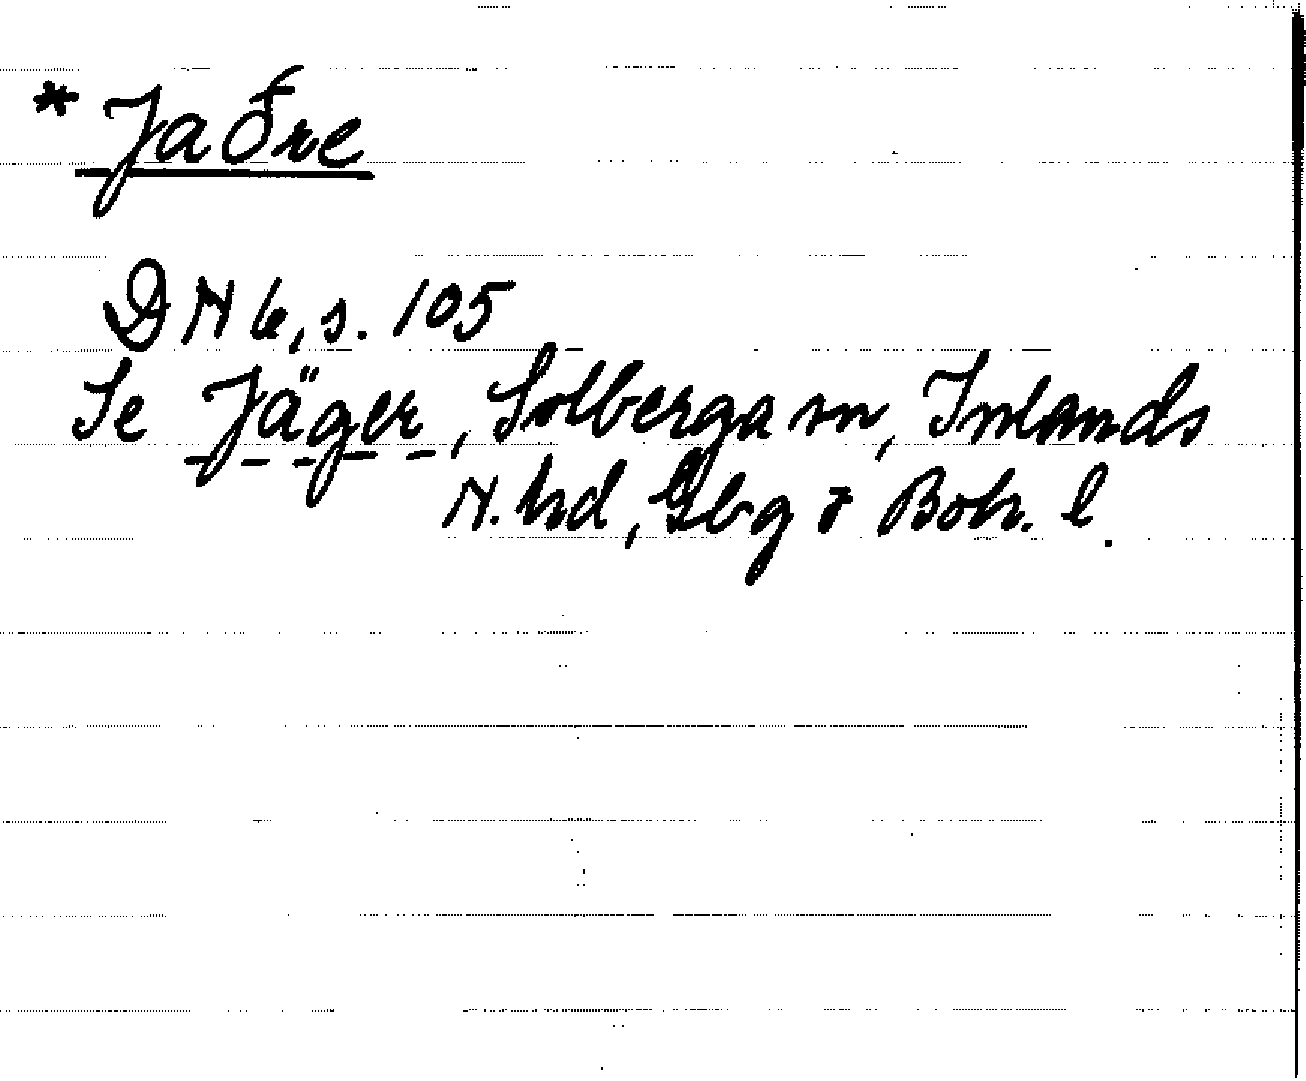 * Jaðre
DN 6, s. 105
Se Jäger, Solberga sn, Inlands
N. hd, Gbg o Boh. l.